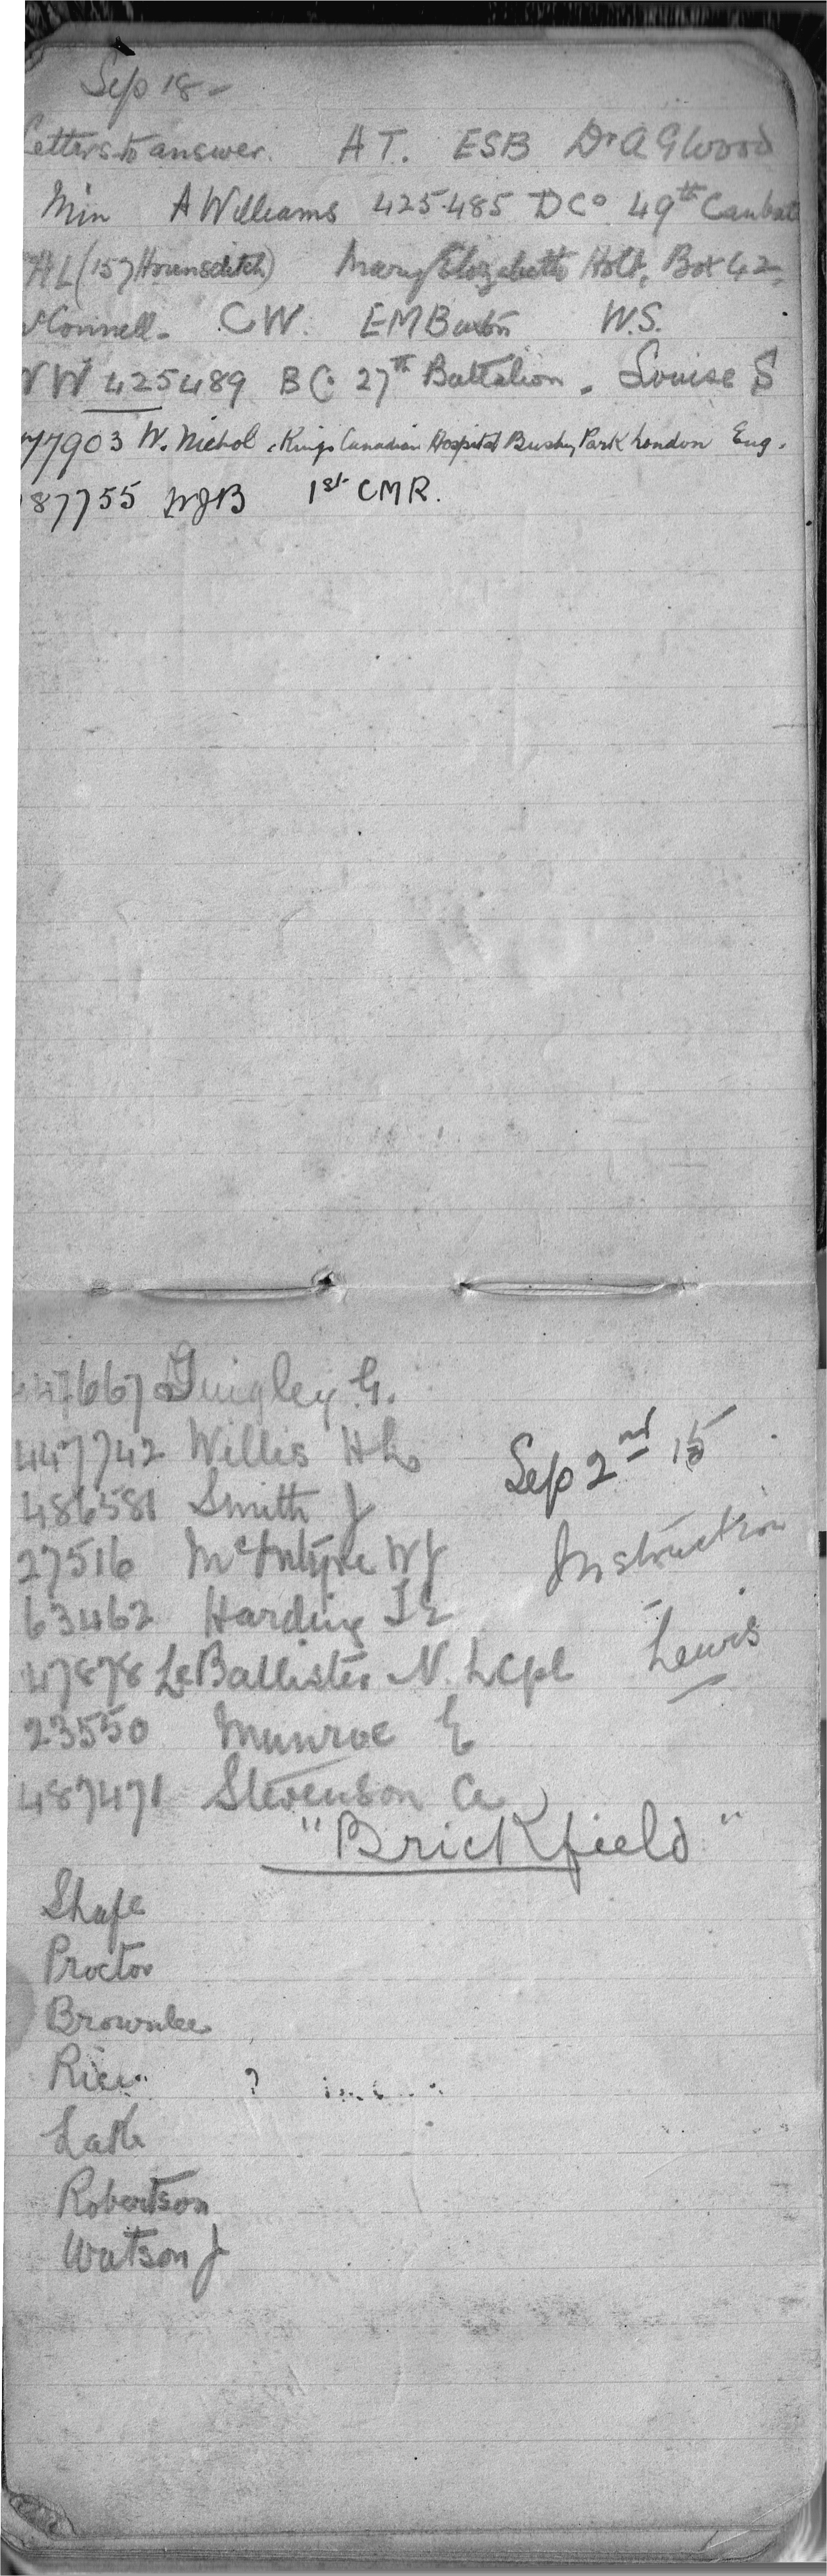 Sep 18 -
Letters to answer. A T. ESB Dr A G Wood
Min A Williams 425485 D Co 49th Can bat
HL (157 Hounsditch) Mary Elizabeth Holt, Box 42.
Connell. CW. EM Buxton W.S.
W 425489 B C. 27th Battalion. Louise S
77903 W. Nichol. Kings Canadian Hospital Bushy Park London Eng.
87755 WJB 1st CMR.
447667 Quigley G.
447742 Willis H
Sep 2nd 15
486581 Smith J
27516 McIntyre WJ
Instruction
63462 Harding
47878 LeBallister N. LCpl
- Lewis
23550 Munroe E
487471 Stevenson
"Brickfield"
Shape
Proctor
Brownlee
Rice ?
Lake
Robertson
Watson J